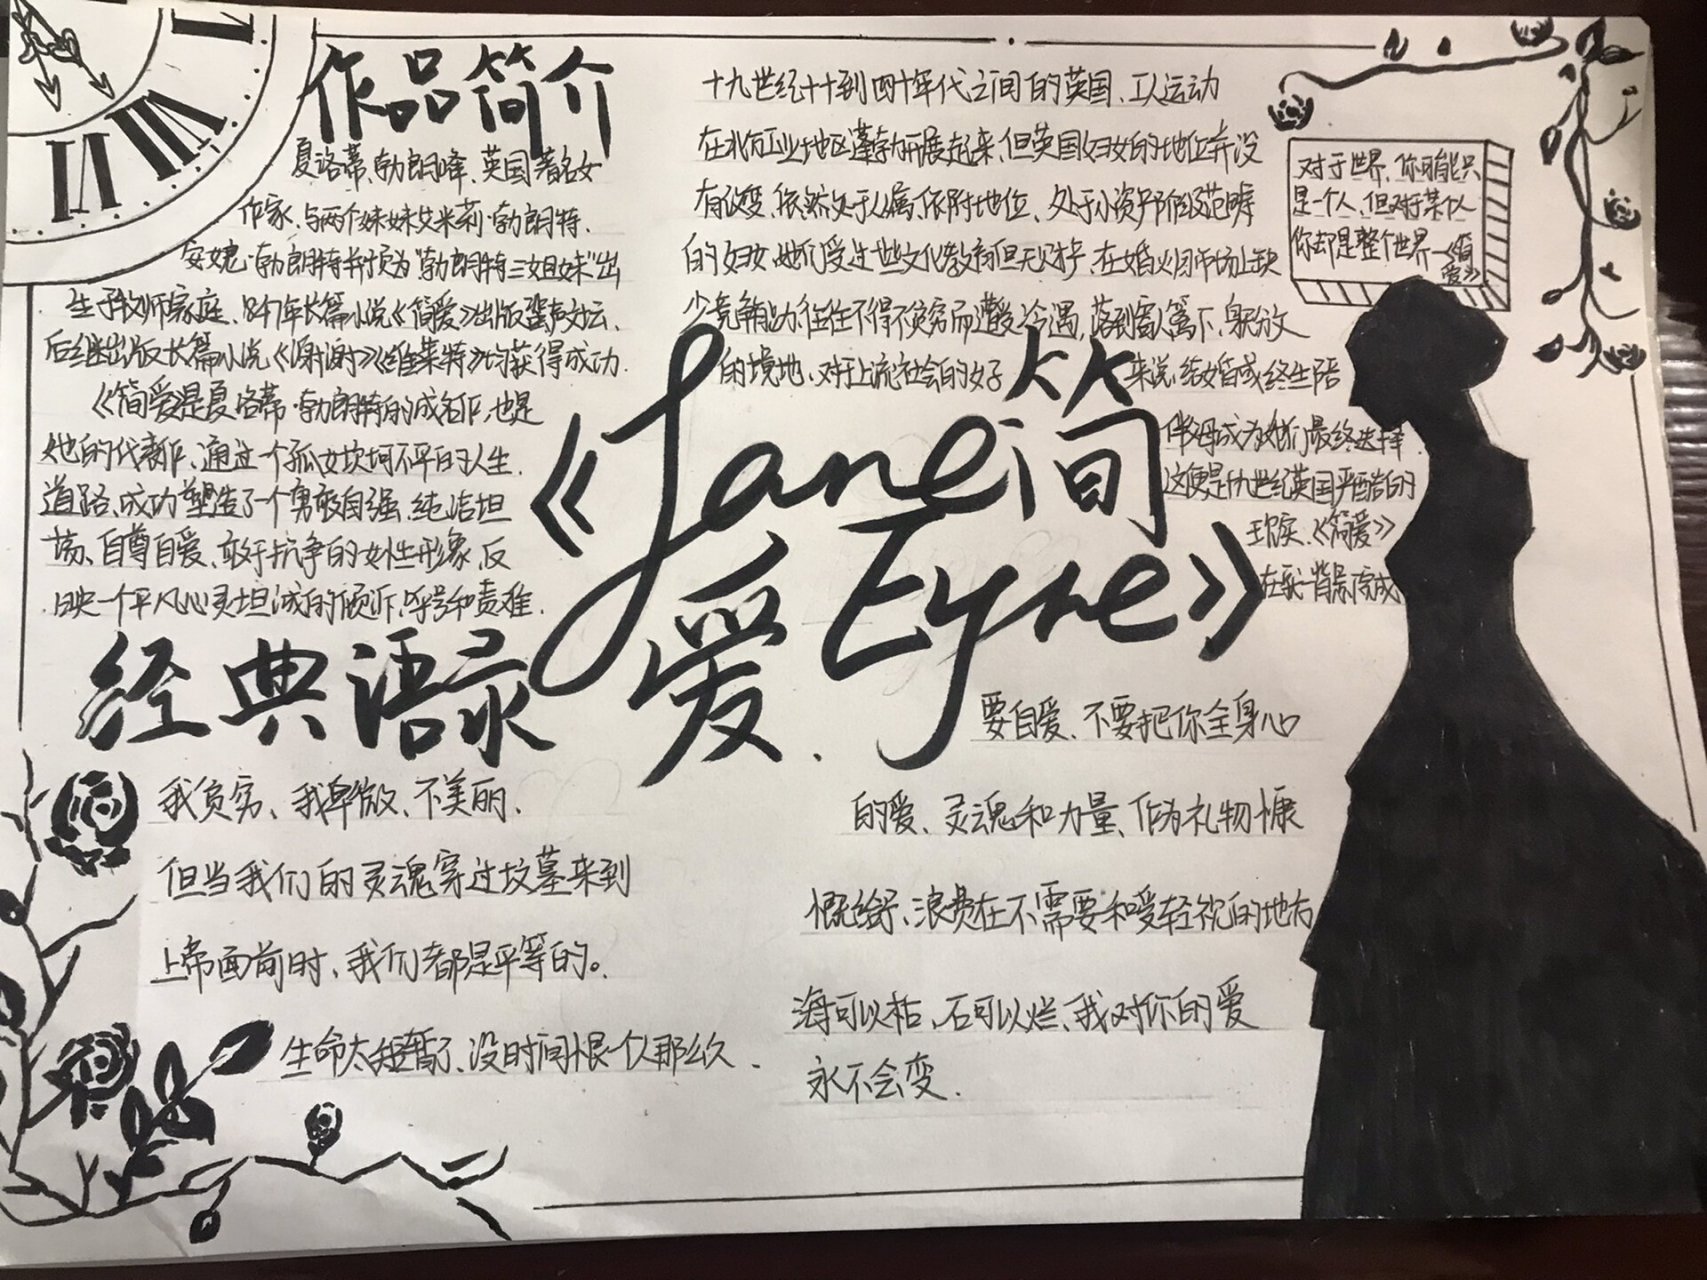 作品简介
夏洛蒂、勃朗峰、英国著名女
作家、与两个妹妹艾米莉·勃朗特、
安妮·勃朗特并称为"勃朗特三姐妹"出
生于牧师家庭、847年长篇小说《简爱》出版蜚声文坛、
后继出版长篇小说《谢谢》《维莱特》均获得成功.
《简爱》是夏洛蒂·勃朗特的成名作,也是
她的代表作、通过一个孤女坎坷不平的人生
道路、成功塑造了一个勇敢自强、纯洁坦
荡、自尊自爱、敢于抗争的女性形象、反
映一个平凡心灵坦诚的倾诉、呼号和责难.
十九世纪十到四十年代之间的英国、工人运动
在北方工业地区蓬勃开展起来,但英国妇女的地位并没
有改变,依然处于从属、依附地位、处于小资产阶级范畴
的妇女,她们受过些文化教育但无财产、在婚姻市场上缺
少竞争能力往往不得不贫穷而遭受冷遇,落到寄人篱下、身份
的境地、对于上流社会的女子
来说、结婚或终生陪
伴母成为她们最终选择
这便是十九世纪英国严酷的
现实、《简爱》
在我一背景完成
对于世界、你可能只
是一个人、但对于某个人
你却是整个世界—《简
爱》
《Jane 简
爱 Eyre》
经典语录
我贫穷、我卑微、不美丽、
但当我们的灵魂穿过坟墓来到
上帝面前时、我们都是平等的。
生命太短暂了、没时间恨一个人那么久.
要自爱、不要把你全身心
的爱、灵魂和力量、作为礼物慷
慨给予、浪费在不需要和受轻视的地方
海可以枯、石可以烂、我对你的爱
永不会变.